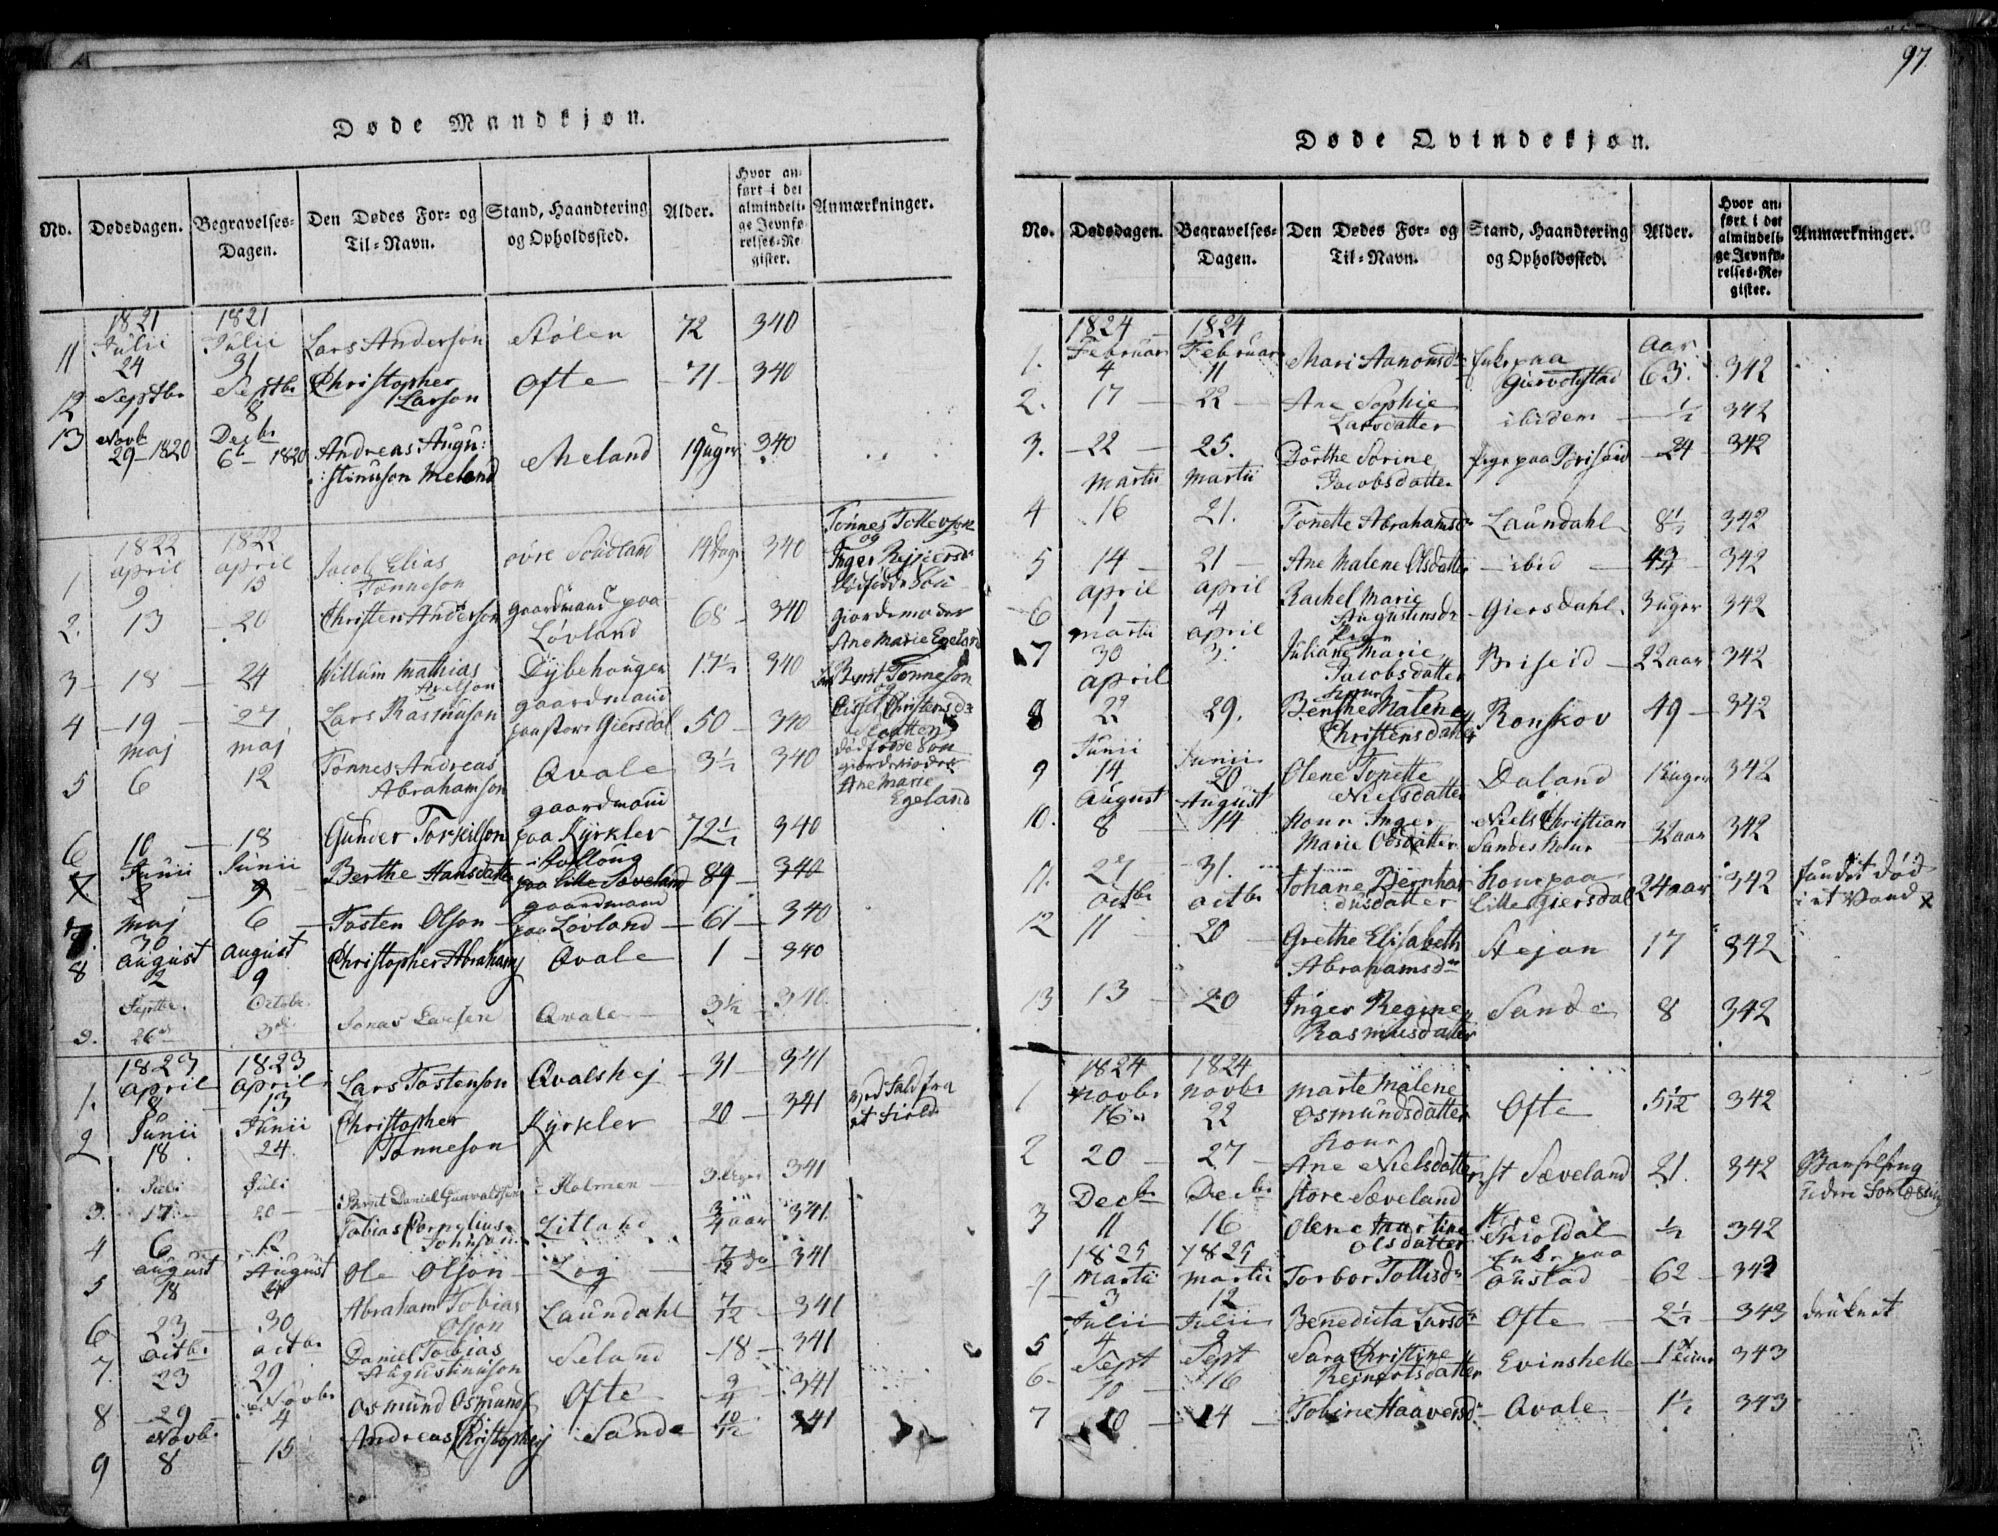 97
Døde Mandkjøn.
No. Dødsdagen. Begravelses-Dagen. Den Dødes For- og Til-Navn. Stand, Haandtering og Opholdssted. Alder. Hvor anført i det almindelige Jevnførelses-Register. Anmærkninger.
1821 1821
11 Julii 24 Julii 31 Lars Anderson Stølen 72 340
12 Septbr 1 Septbr 8 Christopher Larson Ofte 71 340
13 Novb 29 - 1820 Decbr 6 - 1820 Andreas Augustinuson Meland Meland 19 uger 340
1822 1822
1 april 9 april 13 Jacob Elias Tonneson øvre Soudland 14 Dage 340 Tönnes Tollevson og
2. 13 20 Christen Anderson gaardmand paa Lövland 68 340 giordemoder Ane Marie Egeland
3 18 24 Willum Mathias Axelson Dybehougen 17½ 340 Bernt Tonneson og
4 19 27 Lars Rasmuson gaardmand paa store Giersdal 50 340
5 maj 6 maj 12 Tönnes Andreas Abrahamson Qvale 3½ 340 dødfødde Søn giordemoder Ane Marie Egeland
6 10 18 Gunder Torkeilson gaardmand paa Kyrkler 72½ 340
7 Junii 2 Junii 9 Berthe Hansdatter paa lille Sæveland 89 340
7. maj 30 6 Tosten Olson gaardmand paa Lövland 61 340
8 august 2 august 9 Christopher Abrahams Qvale 1 340
9. Septbr. 26de Octobr. 3de Jonas Larsen Qvale 3½ 340
1823 1823
1. april 8 april 13 Lars Tostenson Qvalshej 31 341
2 Junii 18 Junii 24 Christopher Tonneson Kyrkler 20 341 ved Fald fra et Field
3. Juli 17 Juli 20 Bernt Daniel Gunvaldsen Holmen 3 Uger 341
4 6 Tobias Cornelius Johnson Litland 3/4 aar 341
5 august 18 August 24 Ole Olson Log 7/12 do 341
6 23 30 Abraham Tobias Olson Laundahl 7/12 341
7. octbr 23 octbr 29 Daniel Tobias Augustinuson Seland 18 341
8 29 Novbr 4 Osmund Osmunds Ofte 3/4 341
9 Novbr 8 15 Andreas Christophers Sande 10/12 341
Døde Qvindekjøn.
No. Dødsdagen. Begravelses-Dagen. Den Dødes For- og Til-Navn. Stand, Haandtering og Opholdssted. Alder. Hvor anført i det almindelige Jevnførelses-Register. Anmærkninger.
1824 1824
1. Februar 4 Februar 11 Mari Aanonsdr Enke paa Giervolstad aar 63. 342
2. 17 22 Ane Sophie Larsdatter ibidem ½ 342
3. 22 25. Dorthe Sorine Jacobsdatter pige paa Briseid 24 342
4 Martii 16 Martii 21. Tonette Abrahamsdr Laundahl 8½ 342
5 14 21 Ane Malene Olsdatter ibid 43 342
6 april 1 april 4 Rachel Marie Augustinsdr Giersdahl. 3 uger 342
7 martii 30 april 3. Pigen Juliane Marie Jacobsdatter Briseid 22 aar 342
8 april 22 29. Berthe Malene Christensdatter Ronskov 49 342
9 Junii 14 Junii 20 Olene Tonette Nielsdatter Daland uger 342
10. August 8 August 14 Konen Inger Marie Olsdatter Niels Christian Sandes Kone 32 aar 342
11. 27 31. Johane Bernhardusdatter Kone paa Lille Giersdal 24 aar 342 fundet død i et Vand
12 octbr 11 octbr 20 Grethe Elisabeth Abrahamsdr Stejan 17 342
13 13 20 Inger Regine Rasmusdatter Sande 8 342
1824 1824
1 novbr 16 novbr 22 Marte Malene Osmundsdatter Ofte 5½ 342
2 20 27 Kone Ane Nielsdatter store Sæveland st Sæveland 21. 342 Barselseng
3 Decbr 11 Decbr 16 Olene Martine Olsdatter Skioldal ½ 342
1825 1825
4 martii 3 martii 12 Torbor Tollisdr Enke paa Oustad 62 343
Julii 4 Julii 9 Benedicta Larsdr Ofte 2½ 343 druknet
5
6 Sept 10 Sept 16 Sara Christine Rejnertsdatter Evinshelle 343
7 10 14 Tobine Haaversd Qvale 1½ 343